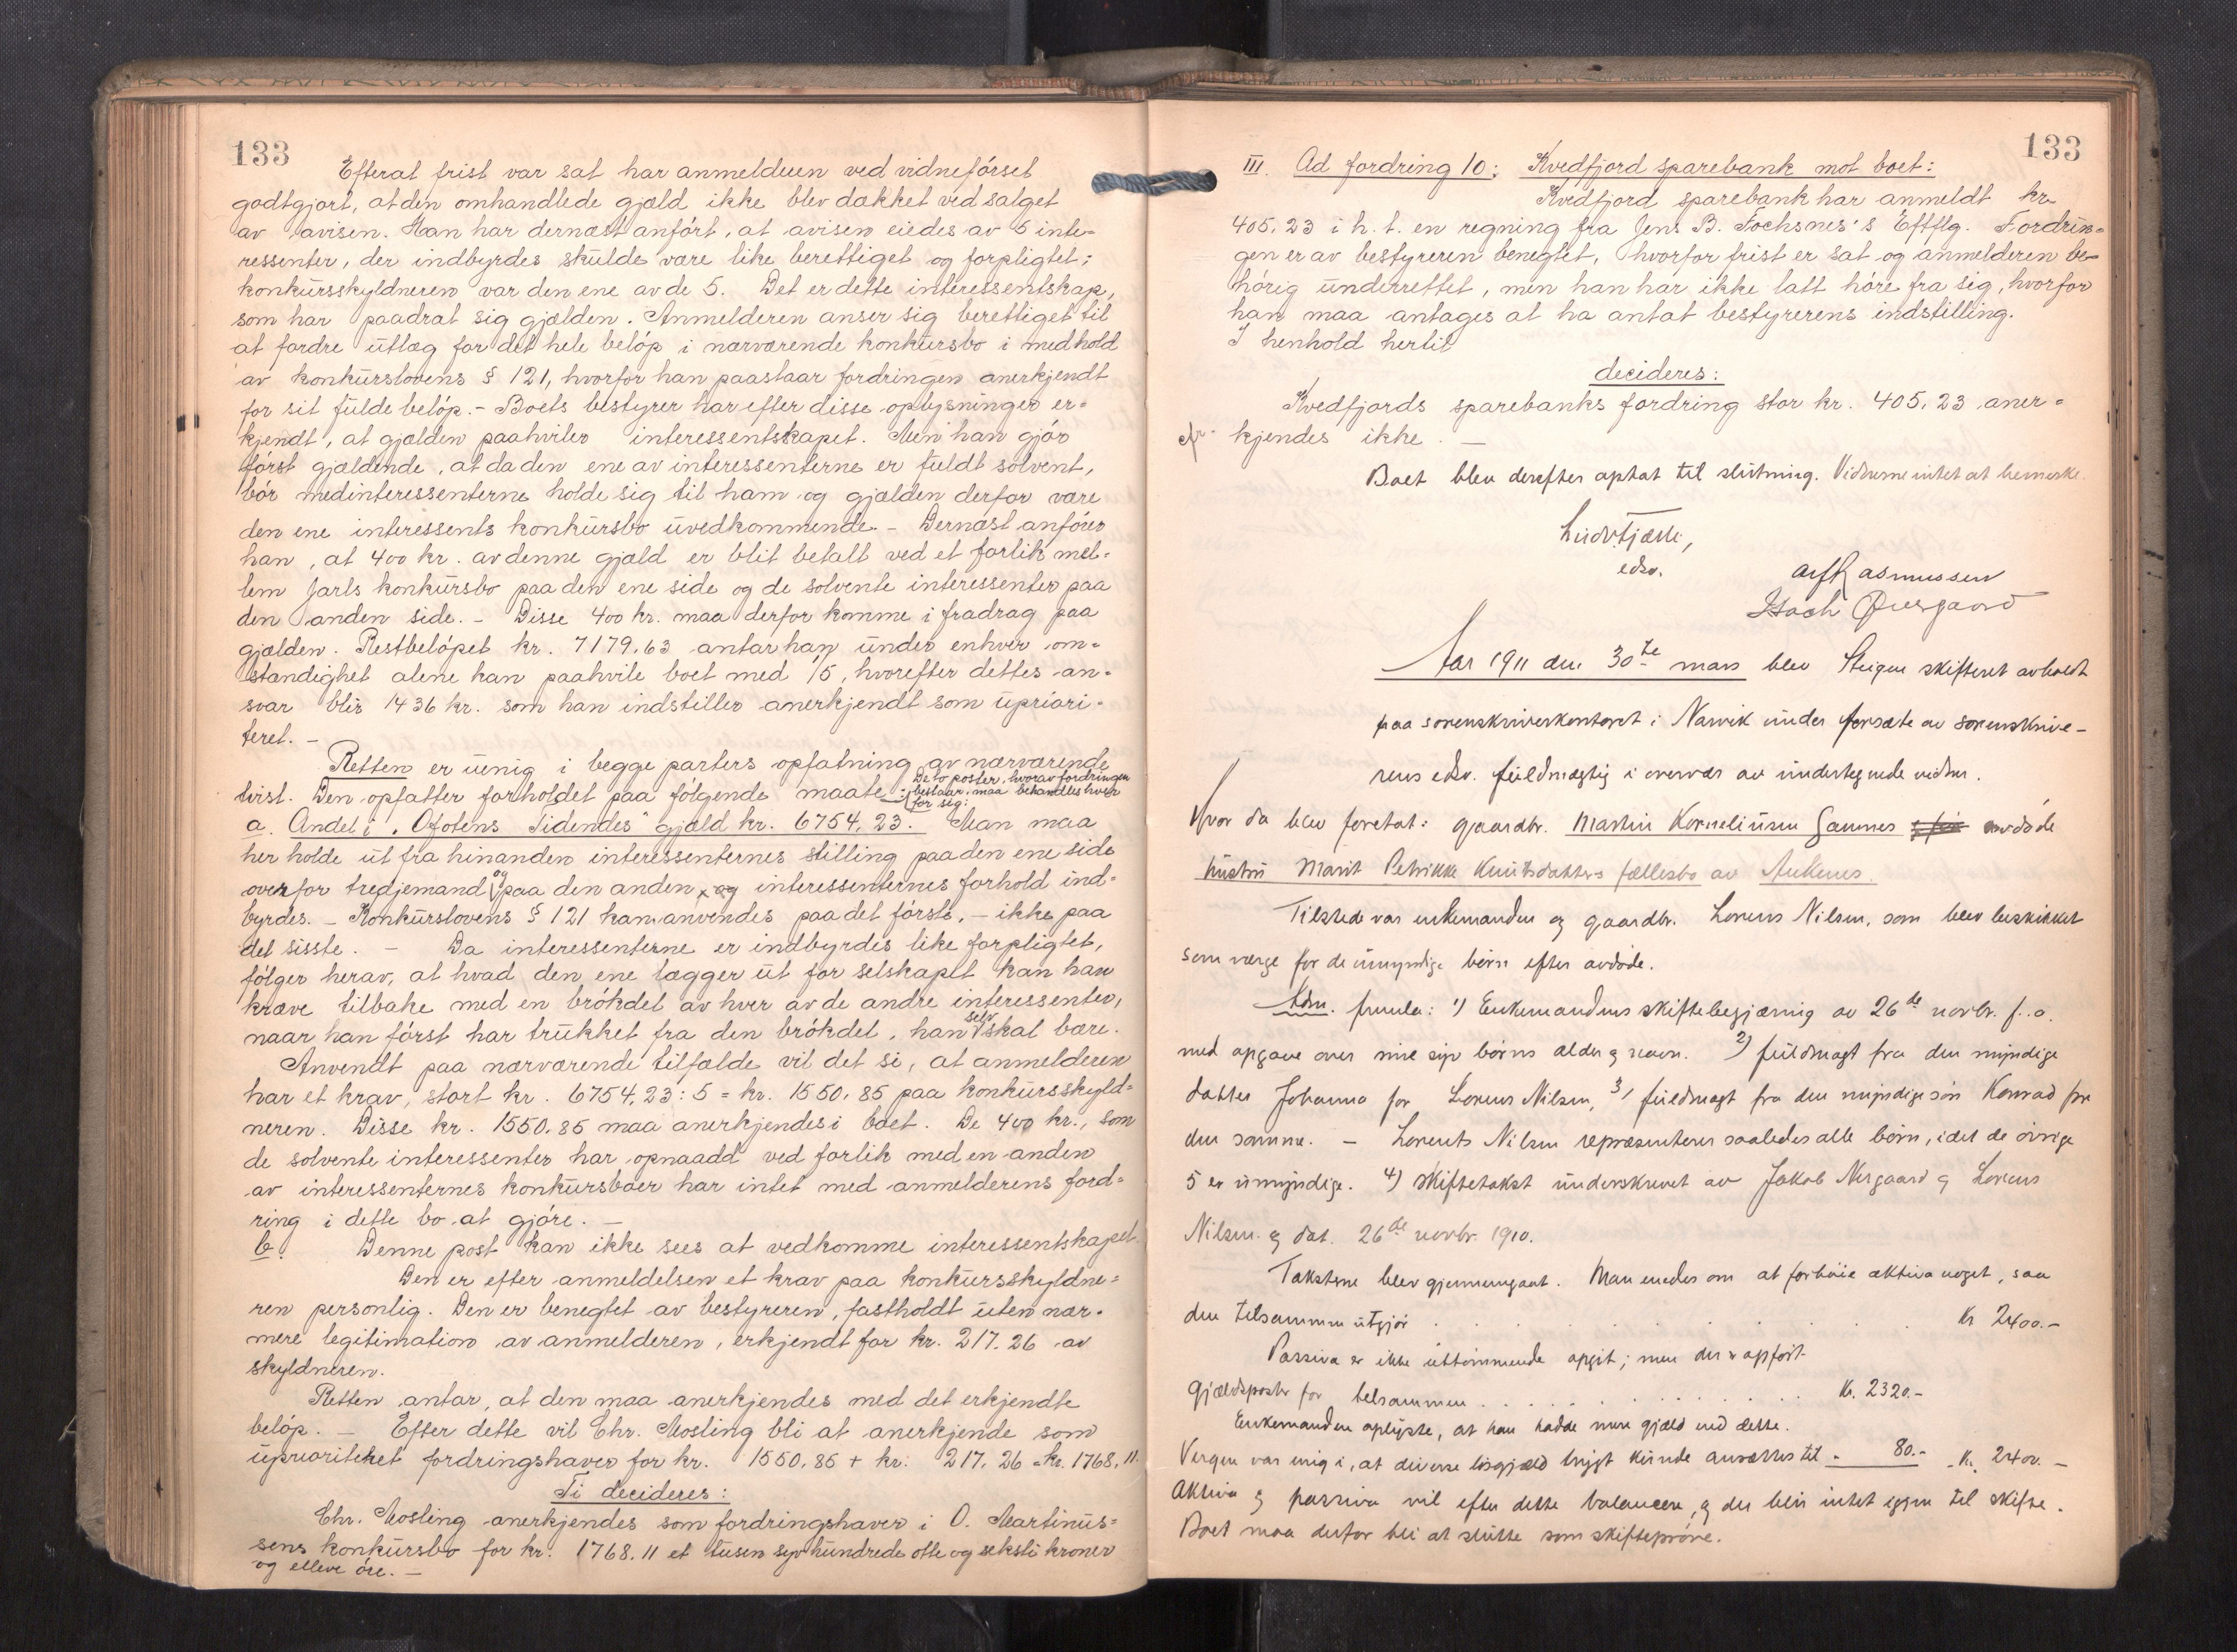 133
Efterat frist var sat har anmelderen ved vidneførsel
godtgjort, at den omhandlede gjæld ikke blev dækket ved salget
av avisen. Han har dernæst anført, at avisen eiedes av 5 inte=
ressenter, der indbyrdes skulde være like berettiget og forpligtet;
konkursskyldneren var den ene av de 5. Det er dette interessentskap,
som har paadrat sig gjælden. Anmelderen anser sig berettiget til
at fordre utlæg for det hele beløp i nærværende konkursbo i medhold
av konkurslovens § 121, hvorfor han paastaar fordringen anerkjendt
for sit fulde beløp. - Boets bestyrer har efter disse oplysninger er=
kjendt, at gjælden paahviler interessentskapet. Men han gjør
først gjældende, at da den ene av interessenterne er fuldt solvent,
bør medinteressenterne holde sig til ham og gjælden derfor være
den ene interessents konkursbo uvedkommende. - Dernæst anfører
han, at 400 kr. av denne gjæld er blit betalt ved et forlik mel=
lem Jarls konkursbo paa den ene side og de solvente interessenter paa
den anden side. - Disse 400 kr. maa derfor komme i fradrag paa
gjælden. Restbeløpet kr. 7179.63 antar han under enhver om=
stændighet alene kan paahvile boet med 1/5, hvorefter dettes an=
svar blir 1436 kr. som han indstiller anerkjendt som upriori=
teret. -
Retten er uenig i begge parters opfatning av nærværende
tvist. Den opfatter forholdet paa følgende maate: De to poster, hvorav fordringen
bestaar, maa behandles hver
for sig:
a. Andel i „Ofotens Tidendes" gjæld kr. 6754.23. Man maa
her holde ut fra hinanden interessenternes stilling paa den ene side
overfor tredjemand og paa den anden, og interessenternes forhold ind=
byrdes. - Konkurslovens § 121 kan anvendes paa det første, - ikke paa
det sisste. - Da interessenterne er indbyrdes like forpligtet,
følger herav, at hvad den ene lægger ut for selskapet kan han
kræve tilbake med en brøkdel av hver av de andre interessenter,
naar han først har trukket fra den brøkdel, han selv skal bære.
Anvendt paa nærværende tilfælde vil det si, at anmelderen
har et krav, stort kr. 6754.23 : 5 = kr. 1550.85 paa konkursskyld=
neren. Disse kr. 1550.85 maa anerkjendes i boet. De 400 kr., som
de solvente interessenter har opnaadd ved forlik med en anden
av interessenternes konkursboer har intet med anmelderens ford=
ring i dette bo at gjøre. -
b. Denne post kan ikke sees at vedkomme interessentskapet.
Den er efter anmeldelsen et krav paa konkursskyldne=
ren personlig. Den er benegtet av bestyreren, fastholdt uten nær=
mere legitimation av anmelderen, erkjendt for kr. 217.26 av
skyldneren.
Retten antar, at den maa anerkjendes med det erkjendte
beløp. - Efter dette vil Chr. Mosling bli at anerkjende som
uprioritehet fordringshaver for kr. 1550.85 + kr. 217.26 = kr. 1768.11.
Ti decideres:
Chr. Mosling anerkjendes som fordringshaver i O. Martinus=
sens konkursbo for kr. 1768.11 et tusen syv hundrede otte og seksti kroner
og elleve øre. -
133
III. Ad fordring 10: Kvedfjord sparebank mot boet:
Kvedfjord sparebank har anmeldt kr
405.23 i h. t. en regning fra Jens B. Fochsnes's Eftflg. Fordrin=
gen er av bestyreren benegtet, hvorfor frist er sat og anmelderen be=
hørig underrettet, men han har ikke latt høre fra sig, hvorfor
han maa antages at ha antat bestyrerens indstilling.
I henhold hertil
decideres:
Kvedfjords sparebanks fordring stor kr. 405.23 aner=
kjendes ikke. -
Boet blev derefter optat til slutning. Vidnerne intet at bemerke.
Ludv. Fjælli,
edsv.
Rasmussen
Isach
Aar 1911 den 30te mars blev Steigen skifteret avholdt
paa sorenskriverkontoret i Narvik under forsæte av sorenskrive-
rens edsv. fuldmægtig i overvær av undertegnede vidner.
Hvor da blev foretat: gaardbr. Martin Korneliusen Gaunes avdøde
hustru Marit Petrikke Knutsdatters fællesbo av Ankenes.
Tilstede var enkemanden og gaardbr. Lorens Nilsen, som blev beskikket
som værge for de umyndige børn efter avdøde.
Adm. fremla: 1) Enkemandens skiftebegjæring av 26de novbr. f. a.
med opgave over sine syv børns alder og navn. 2) fuldmagt fra den myndige
datter Johanna for Lorens Nilsen, 3) fuldmagt fra den myndige søn Konrad for
den samme. - Lorents Nilsen repræsenterer saaledes alle børn, idet de øvrige
5 er umyndige. 4) skiftetakst underskrevet av Jakob Nergaard og Lorens
Nilsen og dat. 26de novbr. 1910.
Taksterne blev gjennemgaat. Man enedes om at forhøie aktiva noget, saa
den tilsammen utgjør . . . . . . . . kr 2400.-
Passiva er ikke uttømmende opgit; men der er opført
gjældsposter for tilsammen . . . . . . . . Kr. 2320.-
Enkemanden oplyste, at han hadde mere gjæld end dette.
Vergen var enig i, at diverse løsgjæld trygt kunde ansættes til - 80.- . Kr. 2400. -
Aktiva og passiva vil efter dette balancere, og der blir intet igjen til skifte.
Boet maa derfor bli at slutte som skifteprøve.